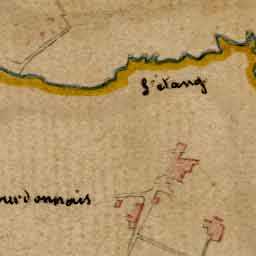 l'étang
ourdonnais